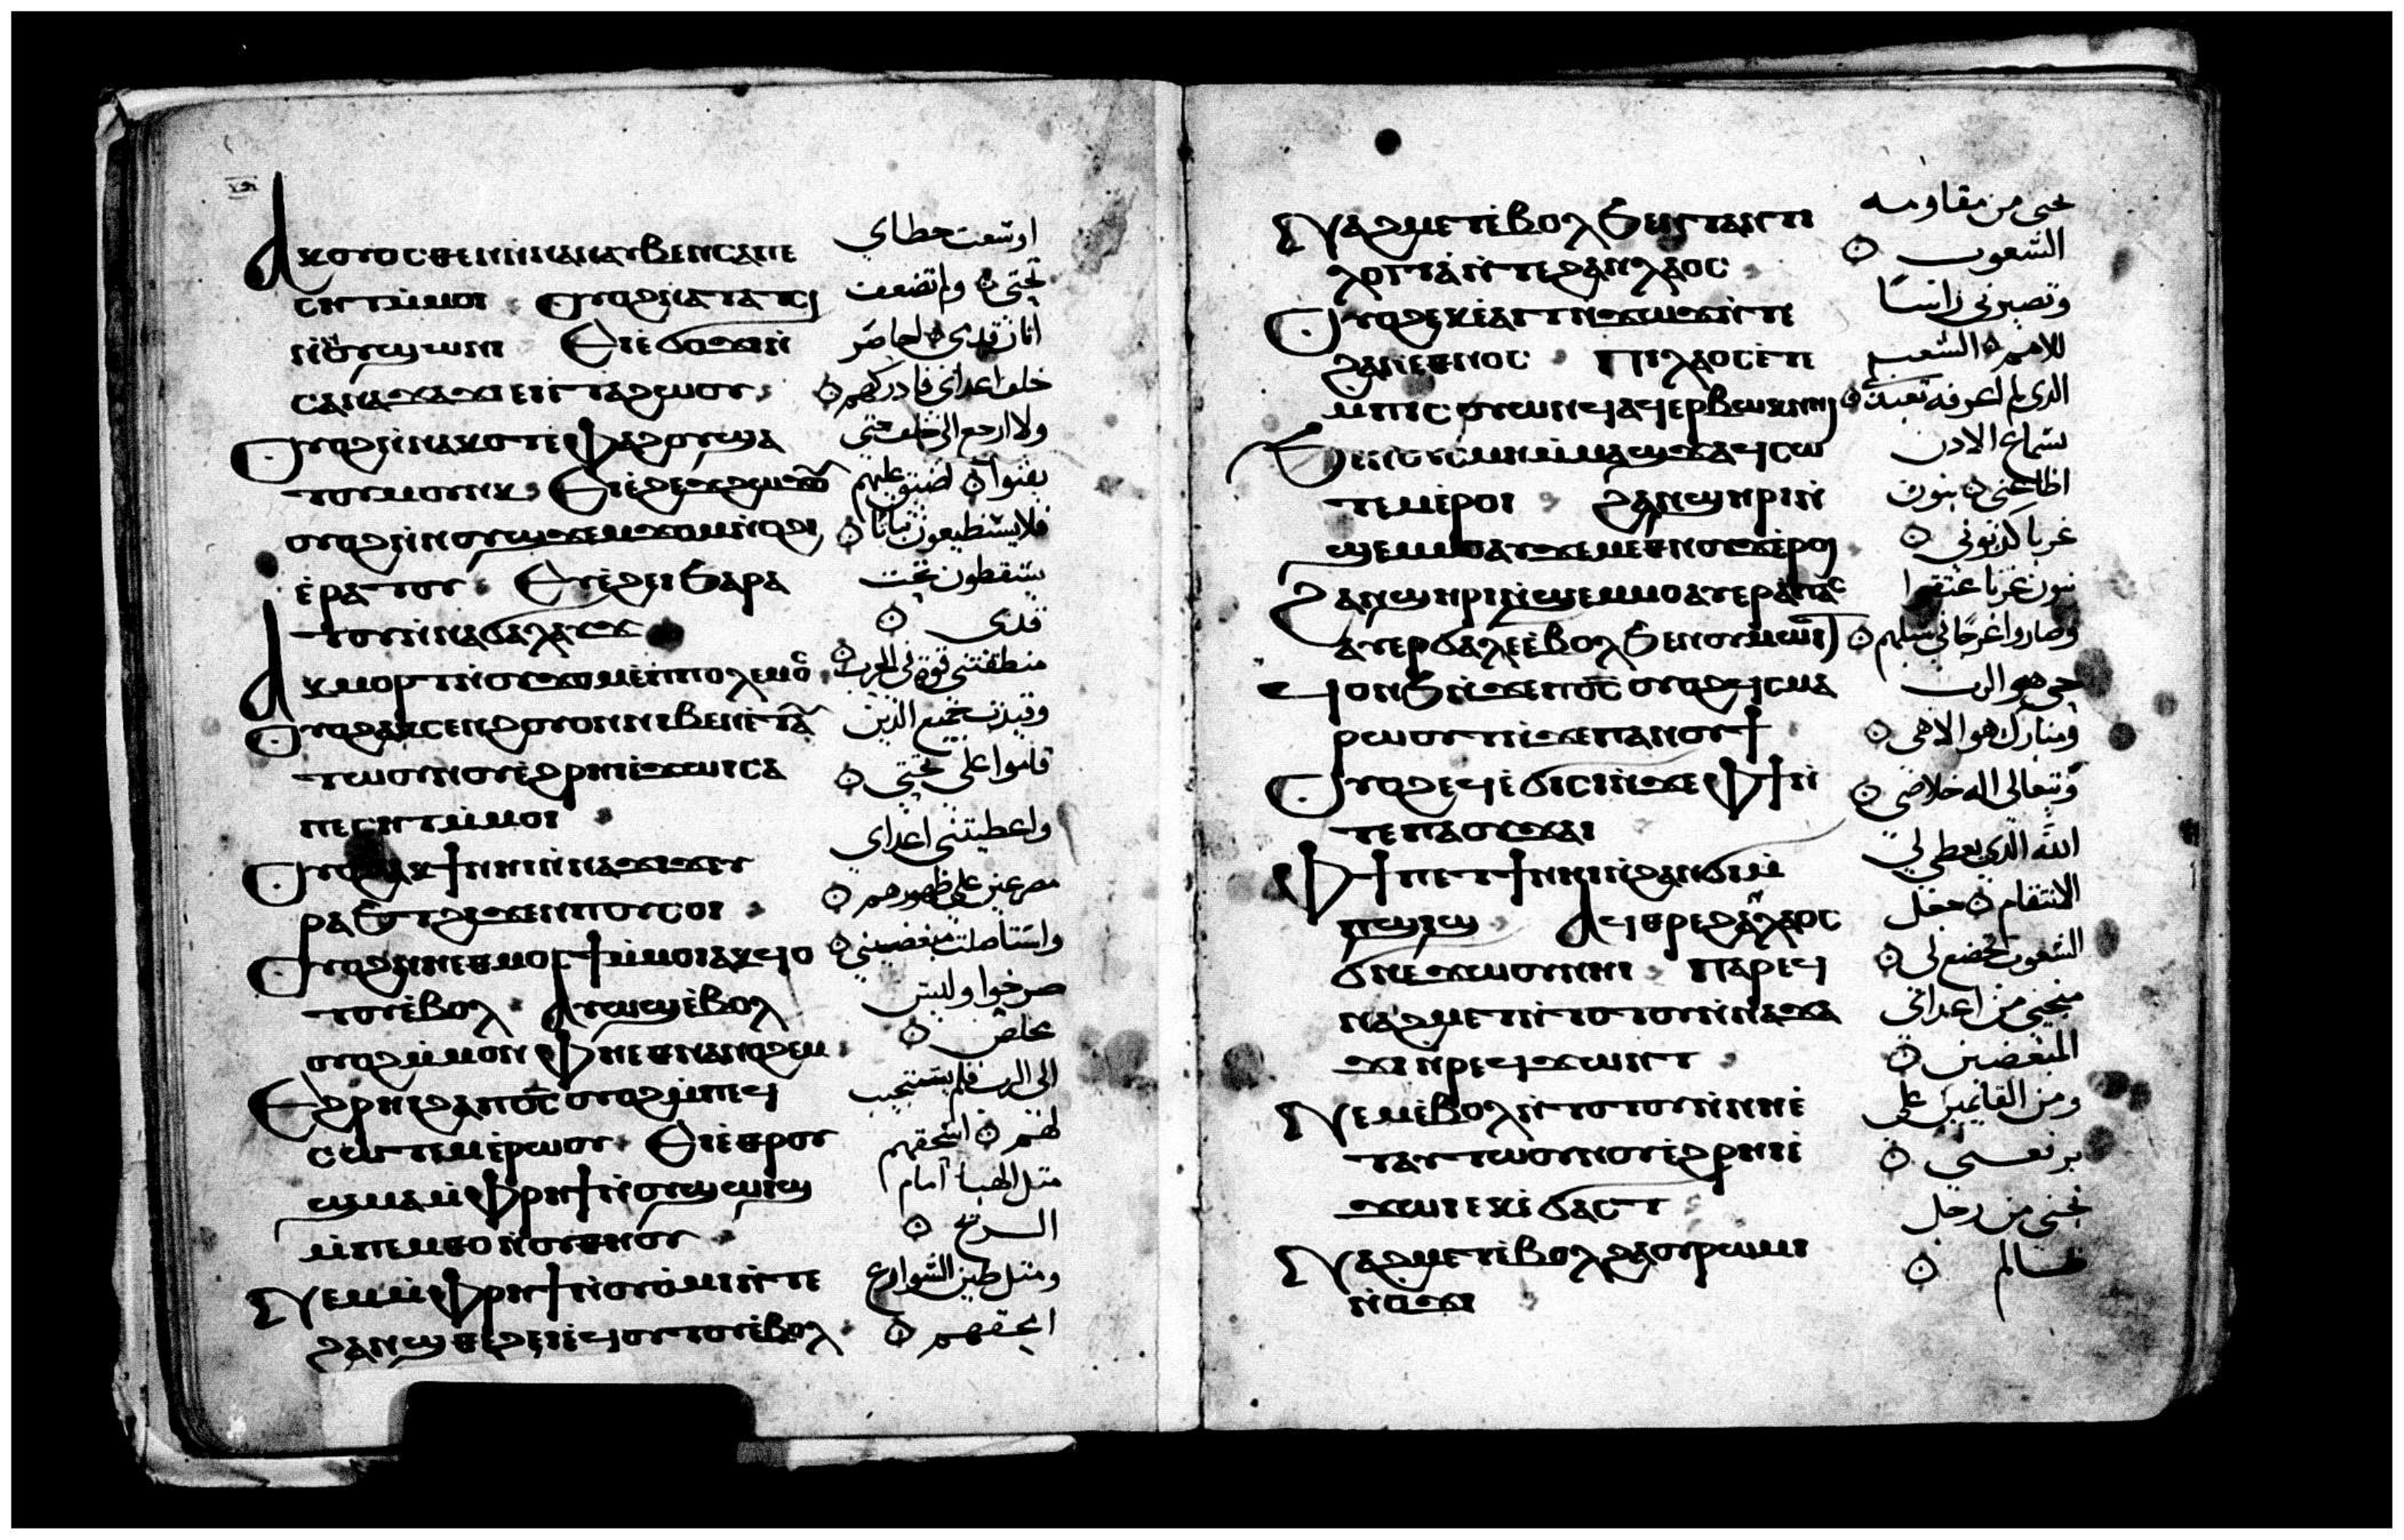 ⲁⲕⲟⲩⲟⲥⲑⲉⲛⲛⲓⲛⲁⲛⲁⲩⲃⲉⲛⲥⲁⲡⲉ
ⲥⲏⲧⲙ̀ⲙⲟⲓ ⲟⲩⲟϩⲛ̀ⲁⲧⲁⲧⲥⲓ
ⲛ̀ϭⲟⲩϣⲱⲛⲓ ⲉⲓⲉ̀ϭⲟϫⲓⲛ̀
ⲥⲁⲛⲁϫⲁϫⲓⲉⲓⲉ̀ⲧⲁϩⲱⲟⲩ
ⲟⲩⲟϩⲛ̀ⲛⲁⲕⲟⲧⲧⲉ̀ⲫⲁϩⲟⲩϣⲁ
ⲧⲟⲩⲙⲟⲩⲛⲕ ⲉⲓⲉ̀ϩⲉϫϩⲱϫⲟⲩ
ⲟⲩⲟϩⲛ̀ⲛⲟⲩϣϫⲉⲙϫⲟⲙⲛ̀ⲟϩⲓ
ⲉ̀ⲣⲁⲧⲟⲩ ⲉⲩⲉ̀ϩⲉⲓϧⲁⲣⲁ
ⲧⲟⲩⲛ̀ⲛⲁϭⲁⲗⲁⲩϫ
ⲁⲕⲙⲟⲣⲧⲛ̀ⲟⲩϫⲟⲙⲉ̀ⲡⲡⲟⲗⲉⲙⲟⲥ
ⲟⲩⲟϩⲁⲕⲥⲉⲛϩⲟⲩⲟⲛⲛⲓⲃⲉⲛⲉ̀ⲧⲁⲩ
ⲧⲱⲟⲩⲛⲟⲩⲉ̀ϩⲣⲏⲓⲉ̀ϫⲱⲓⲥⲁ
ⲡⲉⲥⲏⲧⲙ̀ⲙⲟⲓ
ⲟⲩⲟϩⲁⲕϯⲛⲏⲓⲛ̀ⲛⲁϫⲁϫⲓ
ⲣⲁϧⲧϩⲓϫⲉⲛⲡⲟⲩⲥⲟⲓ
ⲟⲩⲟϩⲛⲏⲉⲑⲙⲟⲥϯⲙ̀ⲙⲟⲓⲁⲕϥⲟ
ⲧⲟⲩⲉ̀ⲃⲟⲗ ⲁⲩⲱϣⲉ̀ⲃⲟⲗ
ⲟⲩⲟϩⲙ̀ⲙⲟⲛⲫⲏⲉⲑⲛⲁⲛⲟϩⲉⲙ
ⲉϩⲣⲏⲓϩⲁⲡⲟ̅ⲥ̅ⲟⲩⲟϩⲙ̀ⲡⲉϥ
ⲥⲱⲧⲉⲙⲉ̀ⲣⲱⲟⲩ ⲉⲓⲉ̀ⲑⲣⲟⲩ
ϣⲙⲁⲙ̀ⲫⲣⲏϯⲛ̀ⲟⲩϣⲱⲓϣ
ⲙ̀ⲡⲉⲙⲑⲟⲛ̀ⲟⲩⲑⲏⲟⲩ
ⲛⲉⲙⲙ̀ⲫⲣⲏϯⲛ̀ⲟⲩⲟ̀ⲙⲓⲛ̀ⲧⲉ
ϩⲁⲛϣⲑⲉϩⲉⲓⲉ̀ϥⲟⲧⲟⲩⲉ̀ⲃⲟⲗ
اوسعت خطاي
تحتي ولم تضعف
اثار قدمي لحاضر
خلف اعدائي فادركهم
ولا ارجع الى خلف حتى
يفنوا اضيق عليهم
فلا يستطيعون ثباتا
يسقطون تحت
قدمي
منطقتني قوة في الحرب
وقيدت جميع الذين
قاموا على تحتي
واعطيتني اعداي
مصرعين على ظهورهم
واستاصلت مبغضيني
صرخوا وليس
مخلص
الى الرب فلم يستجيب
لهم اسحقهم
مثل الهبا امام
الريح
ومثل طين الشوارع
اسحقهم
ⲛⲁϩⲙⲉⲧⲉ̀ⲃⲟⲗϧⲉⲛⲧⲁⲛⲧⲓ
ⲗⲟⲅⲓⲁ̀ⲛ̀ⲧⲉϩⲁⲛⲗⲁⲟⲥ
ⲟⲩⲟϩⲉⲕⲉ̀ⲁⲓⲧⲛ̀ϫⲱϫⲛ̀ⲧⲉ
ϩⲁⲛⲉⲑⲛⲟⲥ ⲡⲓⲗⲁⲟⲥⲉ̀ⲧⲉ
ⲙⲡⲓⲥⲟⲩⲱⲛϥⲁϥⲉⲣⲃⲱⲕⲛⲏⲓ
ϧⲉⲛⲟⲩⲥⲙⲏⲙ̀ⲙⲁϣϫⲁϥⲥⲱ
ⲧⲉⲙⲉ̀ⲣⲟⲓ ϩⲁⲛϣⲏⲣⲓⲛ̀
ϣⲉⲙⲙⲟⲁⲩϫⲉⲙⲉⲑⲛⲟⲩϫⲉ̀ⲣⲟⲓ
ϩⲁⲛϣⲏⲣⲓⲛ̀ϣⲉⲙⲙⲟⲁⲩⲉⲣⲁⲡⲁⲥ
ⲁⲩⲉⲣϭⲁⲗⲉⲉ̀ⲃⲟⲗϧⲉⲛⲟⲩⲙⲱⲓⲧ
ϥⲟⲛϧⲛ̀ϫⲉⲡⲟ̅ⲥ̅ⲟⲩⲟϩϥⲥⲙⲁ
ⲣⲱⲟⲩⲧⲛ̀ϫⲉⲡⲁⲛⲟⲩϯ
ⲟⲩⲟϩⲉϥⲉ̀ϭⲓⲥⲓⲛ̀ϫⲉⲫϯⲛ̀
ⲧⲉⲡⲁⲟⲩϫⲁⲓ
ⲫϯⲡⲉⲧϯⲛⲏⲓⲛ̀ϩⲁⲛϭⲓⲙ̀
ⲡϣⲓϣ ⲁϥⲑⲣⲉϩⲁⲛⲗⲁⲟⲥ
ϭⲛⲉϫⲱⲟⲩⲛⲏⲓ ⲡⲁⲣⲉϥ
ⲛⲁϩⲙⲉⲧⲛ̀ⲧⲟⲧⲟⲩⲛ̀ⲛⲁϫⲁ
ϫⲓⲛ̀ⲣⲉϥϫⲱⲛⲧ
ⲛⲉⲙⲉ̀ⲃⲟⲗⲛ̀ⲧⲟⲧⲟⲩⲛ̀ⲛⲏⲉ̀
ⲧⲁⲩⲧⲱⲟⲩⲛⲟⲩⲉ̀ϩⲣⲏⲓⲉ̀
ϫⲱⲓⲉⲕⲉ̀ϭⲁⲥⲧ
ⲛⲁϩⲙⲉⲧⲉ̀ⲃⲟⲗϩⲁⲟⲩⲣⲱⲙⲓ
ⲛ̀ϭⲓⲛϫⲓ
نجني من مقاومه
الشعوب
وتصيرني راسا
للامم الشعب
الذي لم اعرفه تعبد
بسماع الاذن
اطاعني بنون
غربا كذبوني
بنون غربا عتقوا
وصاروا عرجا في سبلهم
حي هو الرب
ومبارك هو الاهي
وتعالى اله خلاصي
الله الذي يعطي لي
الانتقام جعل
الشعوب تخضع لي
منجيني من اعدائي
المبغضين
ومن القائمين علي
ترفعني
نجني من رجل
ظالم